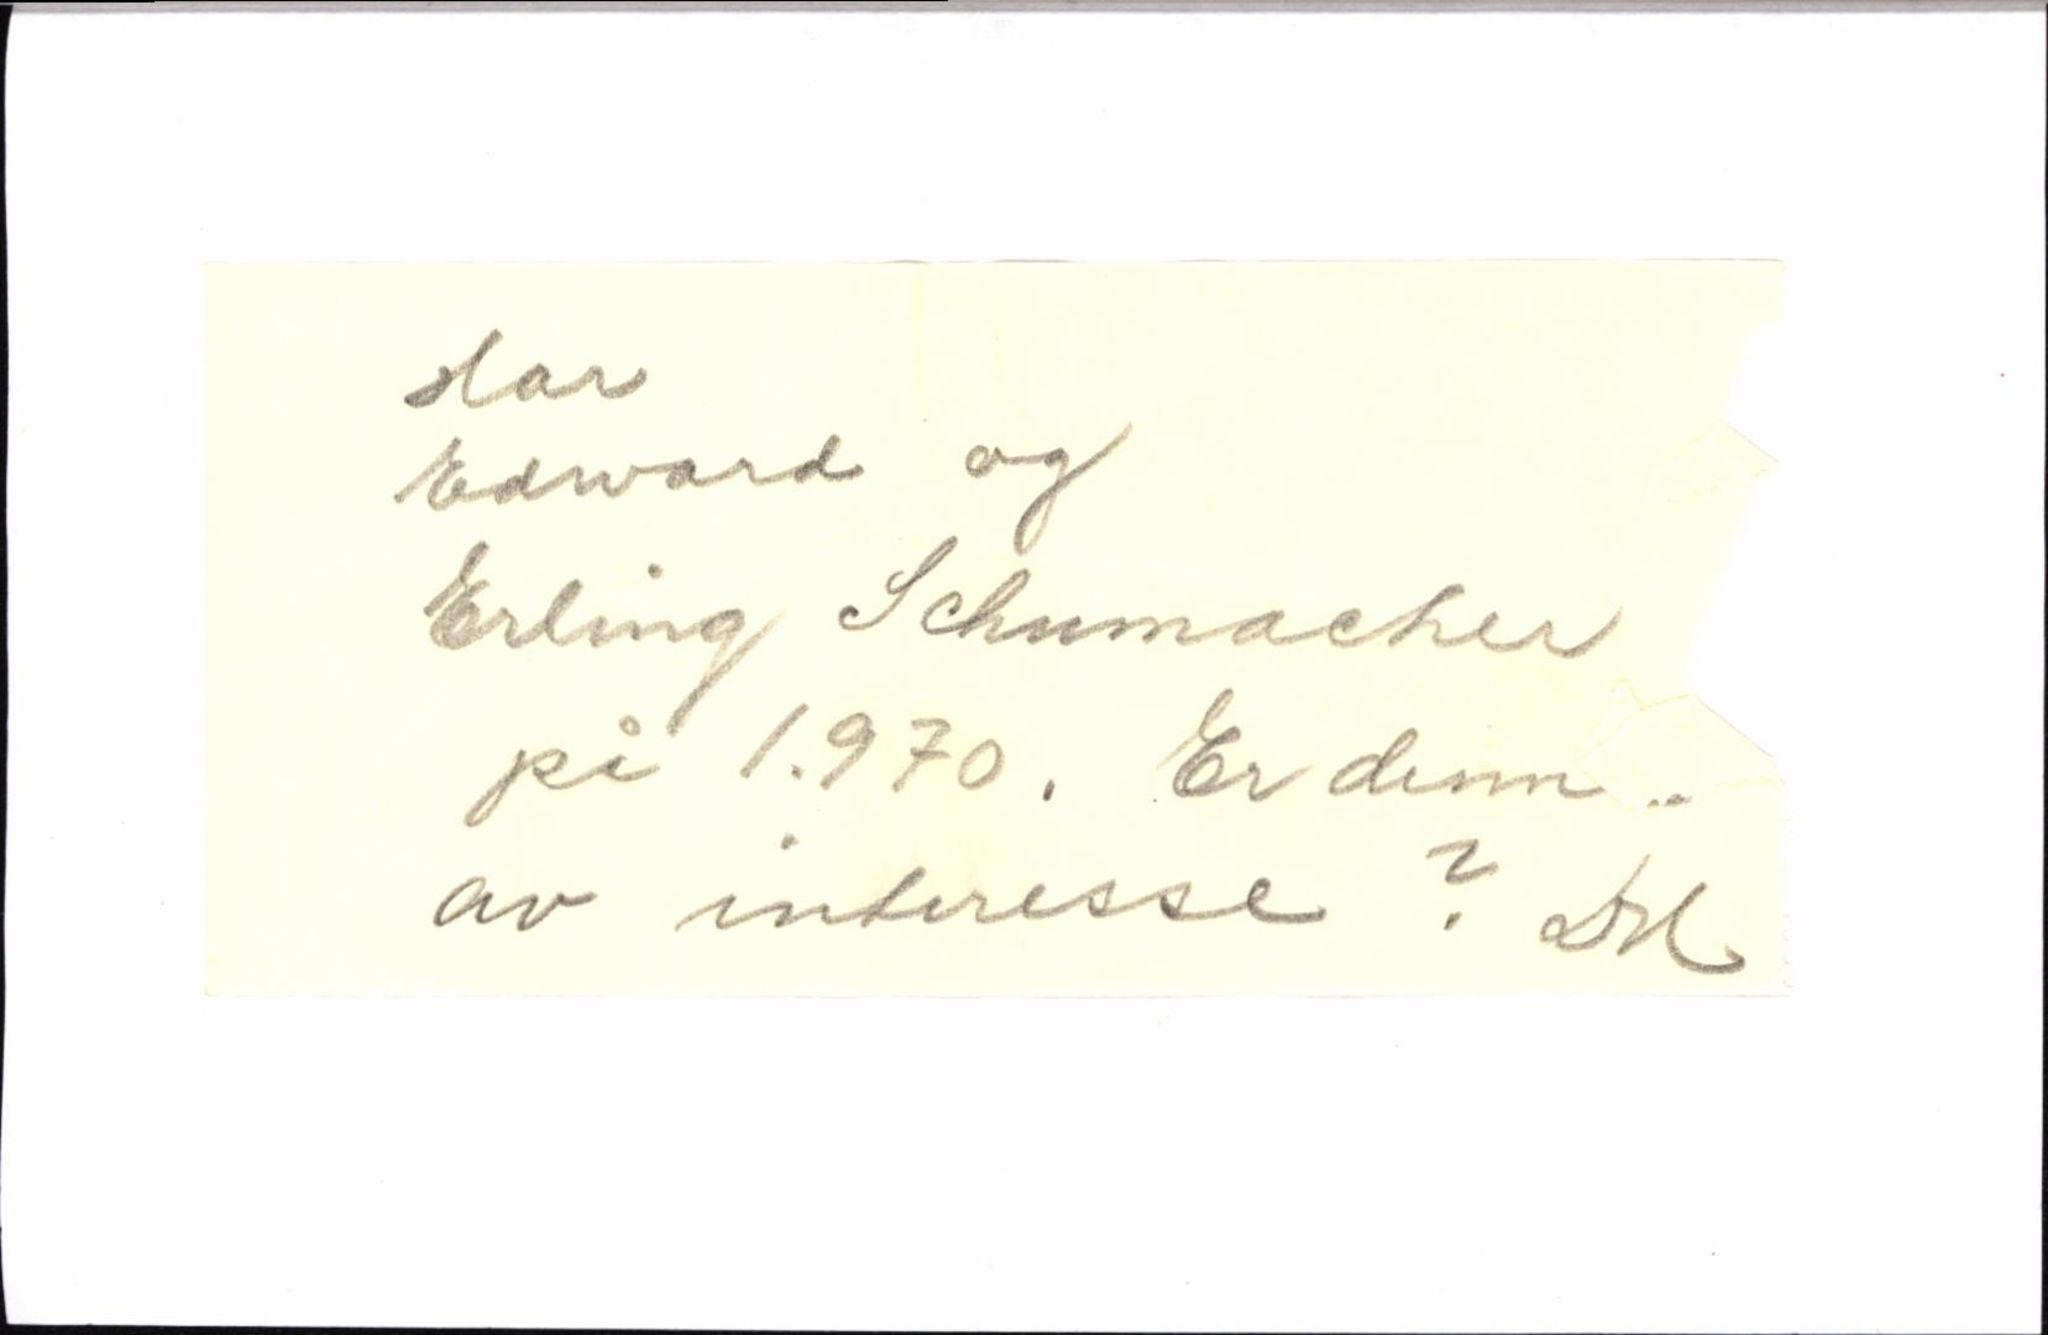 Har
Edward og
Erling Schumacher
på 1.970. Er denn..
av interesse? DH